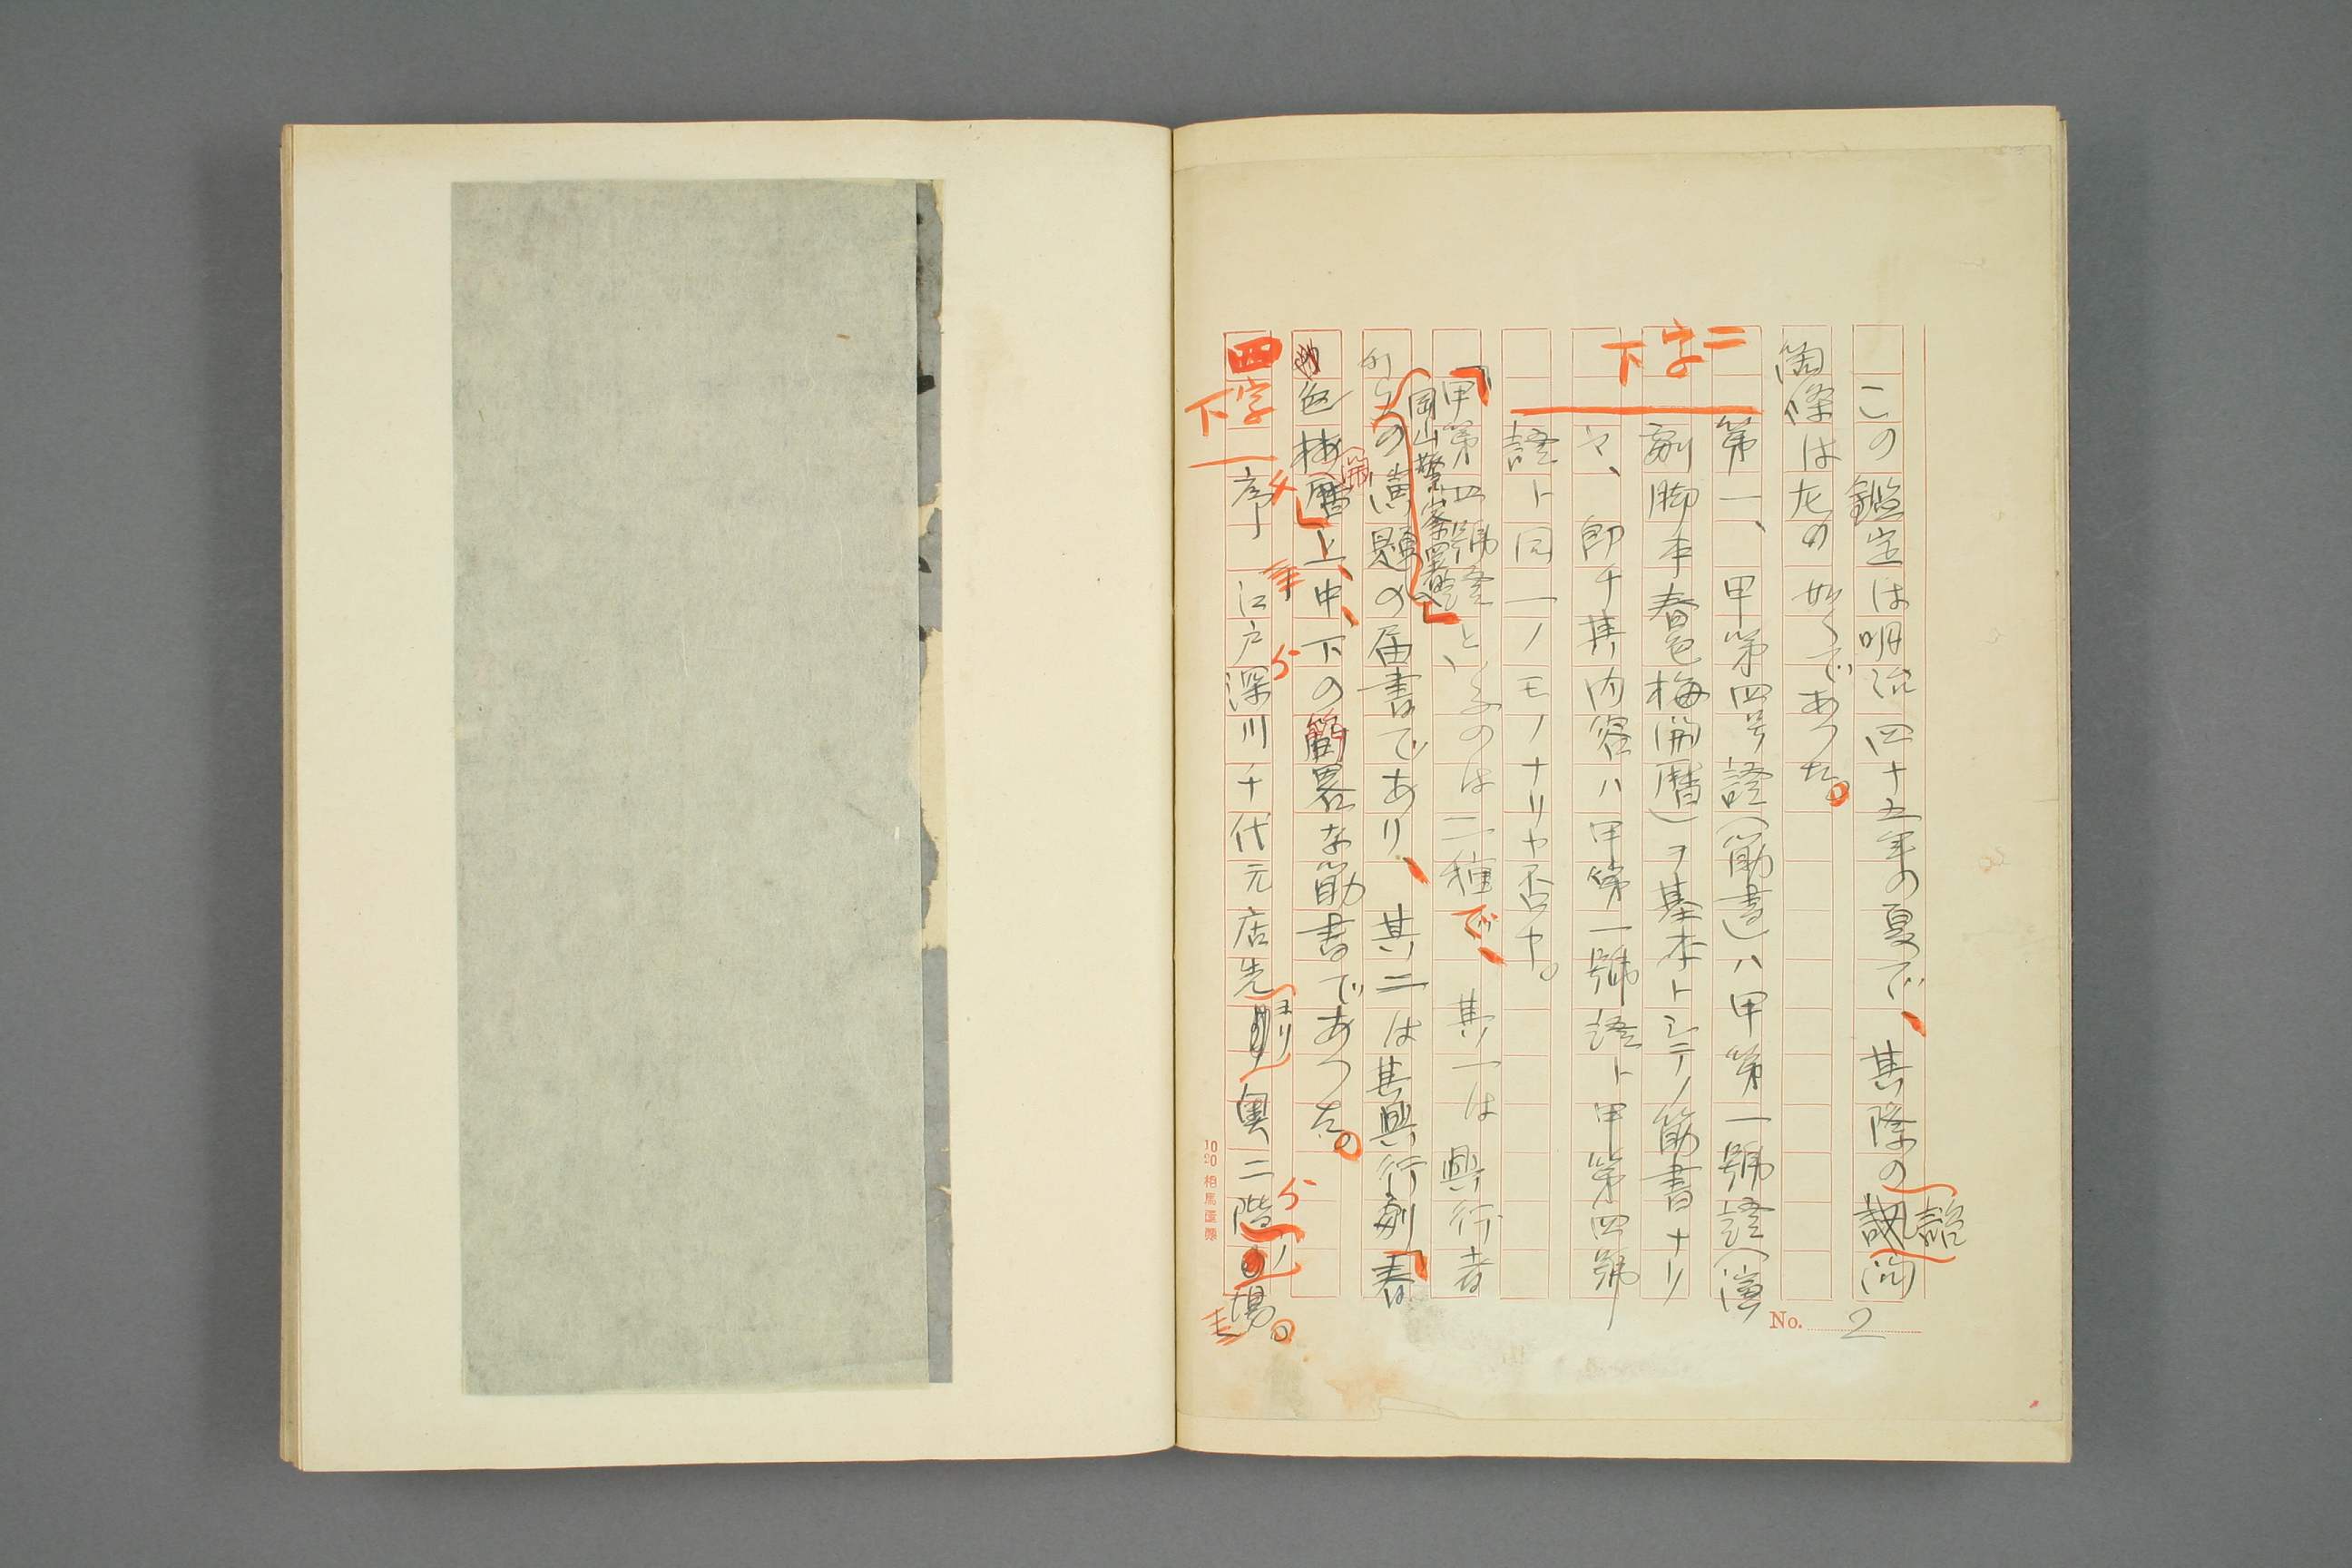 この鑑定は明治四十五年の夏で、其際の詰問
箇條は左の如くであつた。
二字下
第一、甲第四号證（筋書）ハ甲第一號證（演
劇脚本春色梅開暦）ヲ基本トシテノ筋書ナリ
ヤ、即チ其内容ハ甲第一號證ト甲第四號
證ト同一ノモノナリヤ否ヤ。
「甲第四號證」といふのは二種で、其一は興行者
から岡山警察署への演題の届書であり、其二は其興行劇「春
色梅開暦」上、中、下の簡畧な筋書であつた。
四字下
序 江戸深川千代元店先ヨリ奥二階ノ場。
No. 2
10 20 相馬屋製